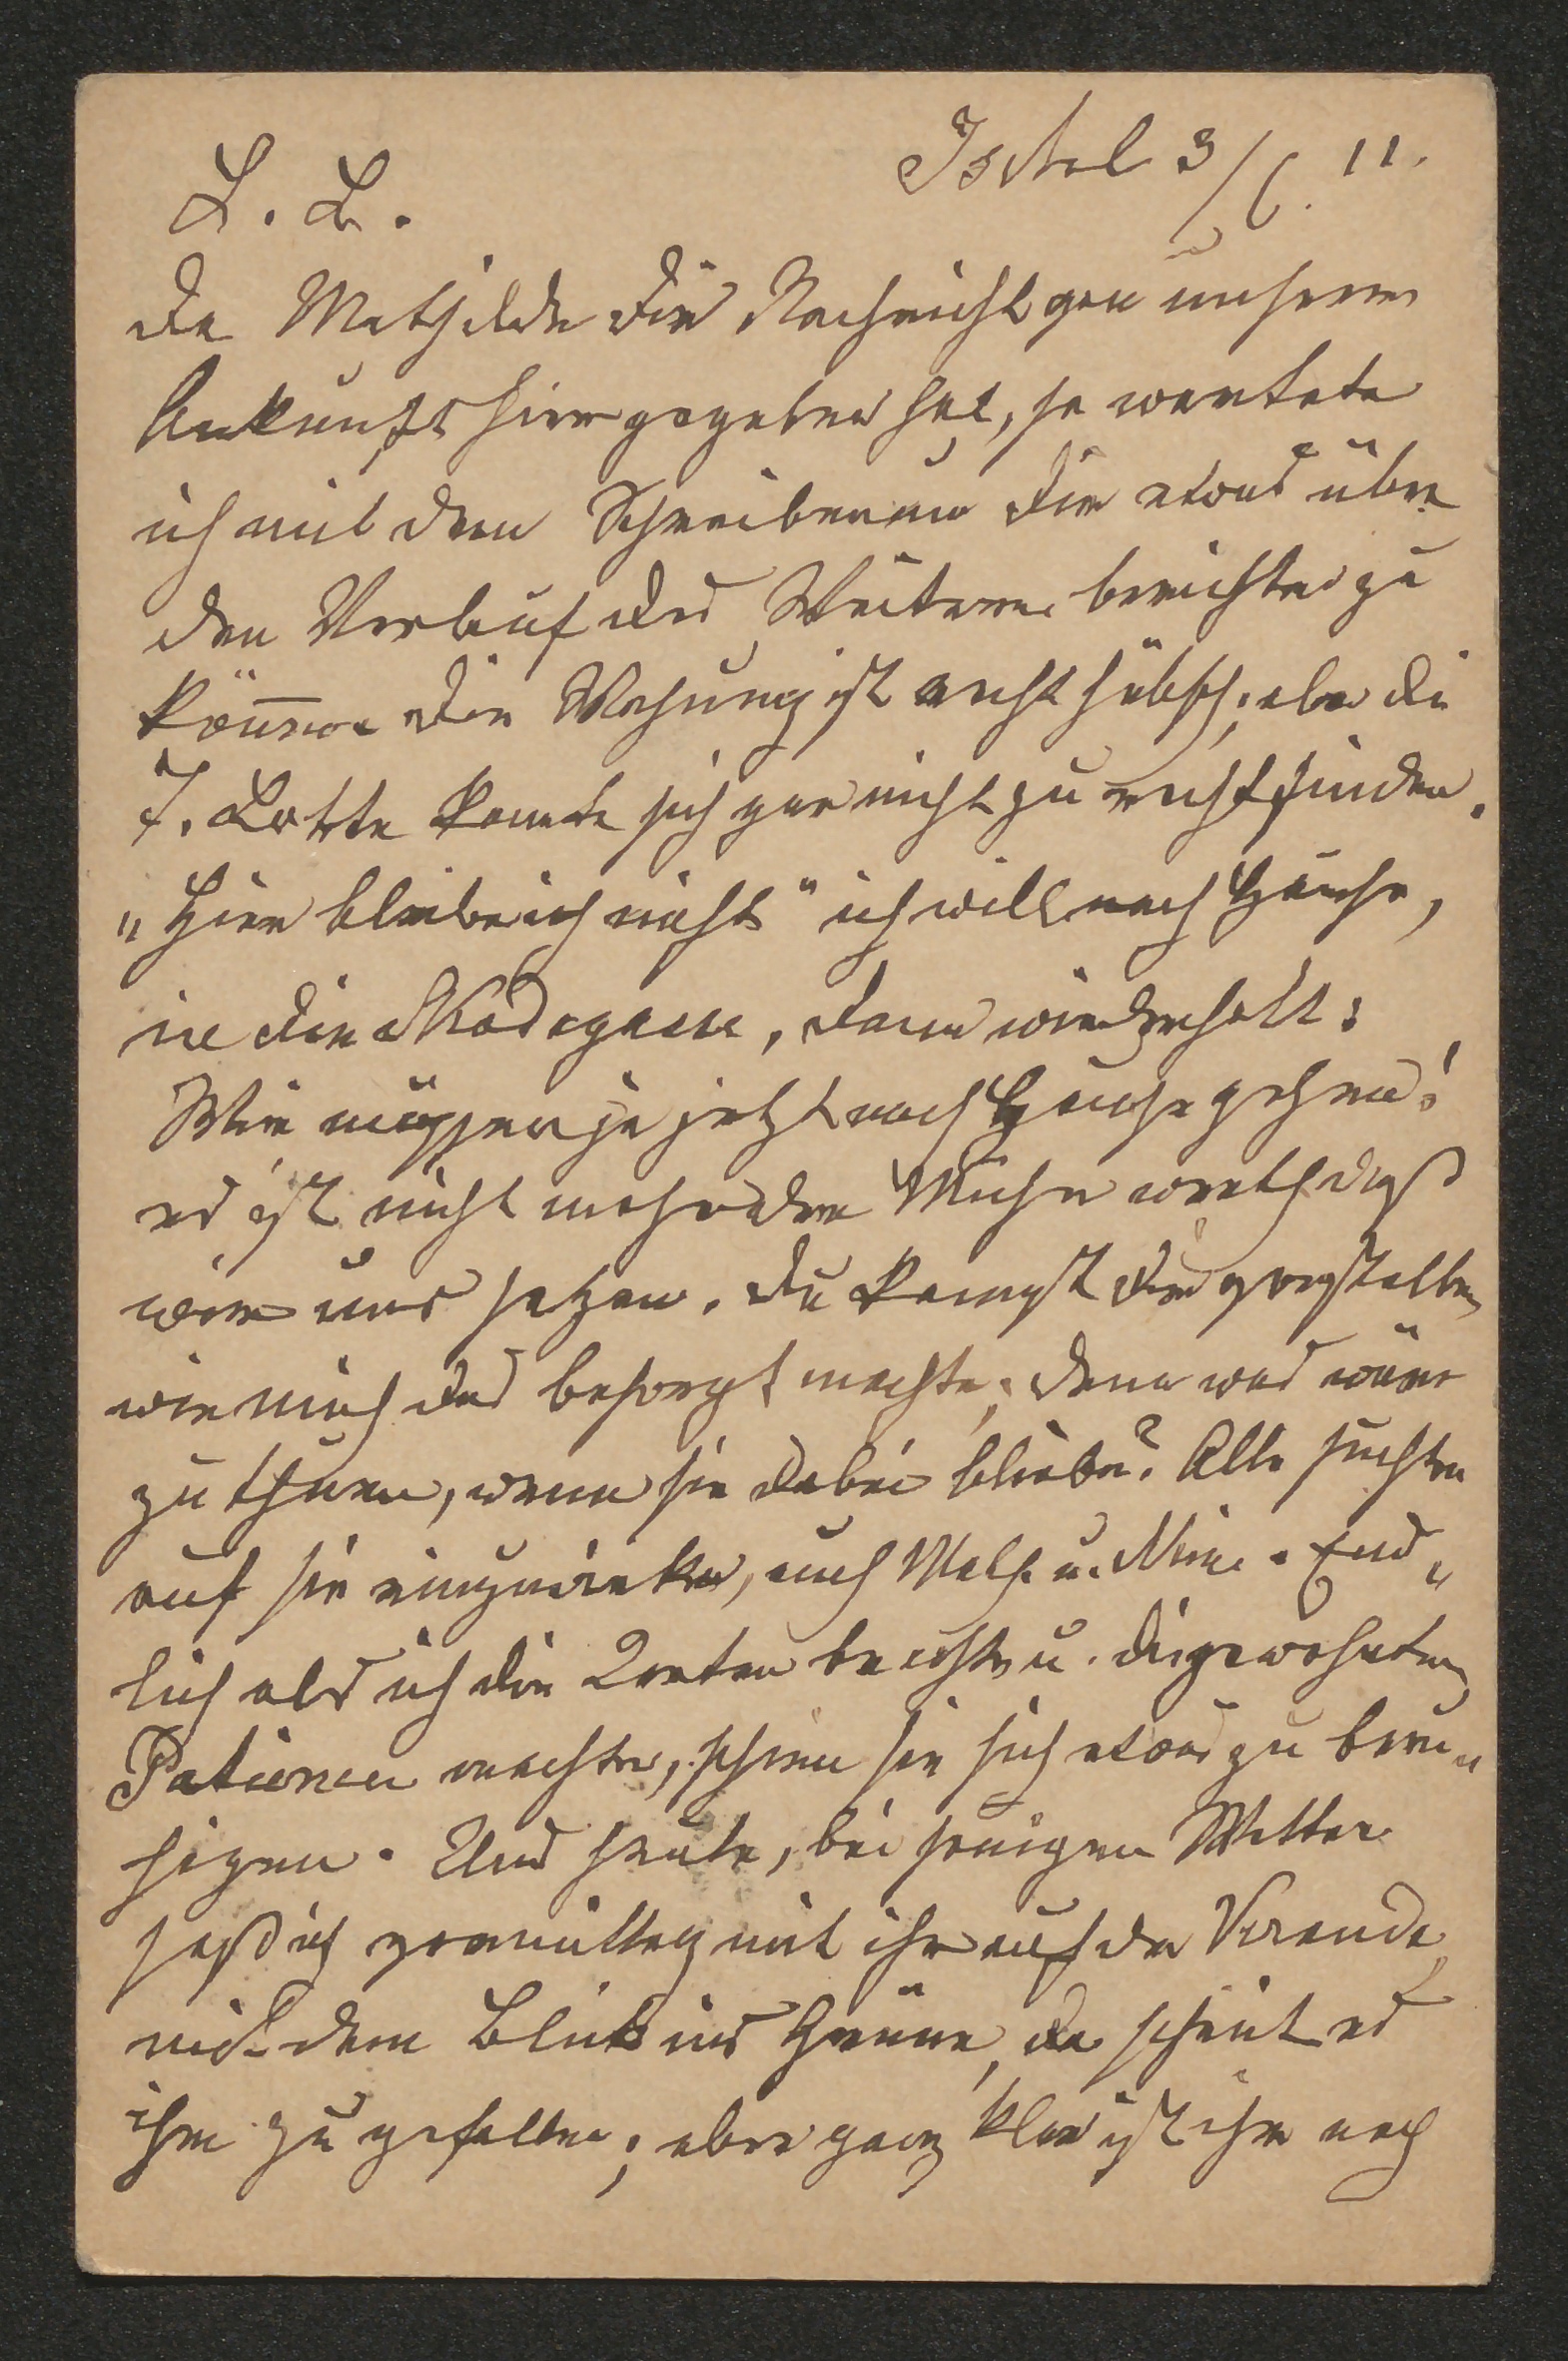 Ischl 3/6. 11.
L. L.
Da Mathilde Dir Nachricht von unserer
Ankunft hier gegeben hat, so wartete
ich mit dem Schreiben um Dir etwas über
den Verlauf des Weiteren berichten zu
können. Die Wohnung ist recht hübsch; aber die
T. Lotte konnte sich gar nicht zurechtfinden.
„Hier bleibe ich nicht" ich will nach Hause,
in die, dann wiederholt:
Wir müssen ja jetzt nach Hause gehen!
es ist nicht mehr der Mühe werth daß
wir uns setzen. Du kannst Dir vorstellen
wie mich das besorgt machte; denn was wäre
zu thun, wenn sie dabei bliebe? Alle suchten
auf sie einzuwirken, auch Math. u. Mine. End„
lich als ich die Karten brachte u. die gewohnten
Patiencen machte, schien sie sich etwas zu beru„
higen. Und heute, bei sonnigem Wetter
saß ich vormittag mit ihr auf der Veranda
mit dem Blick ins Grüne, da scheint es
ihr zu gefallen; aber ganz klar ist ihr noch